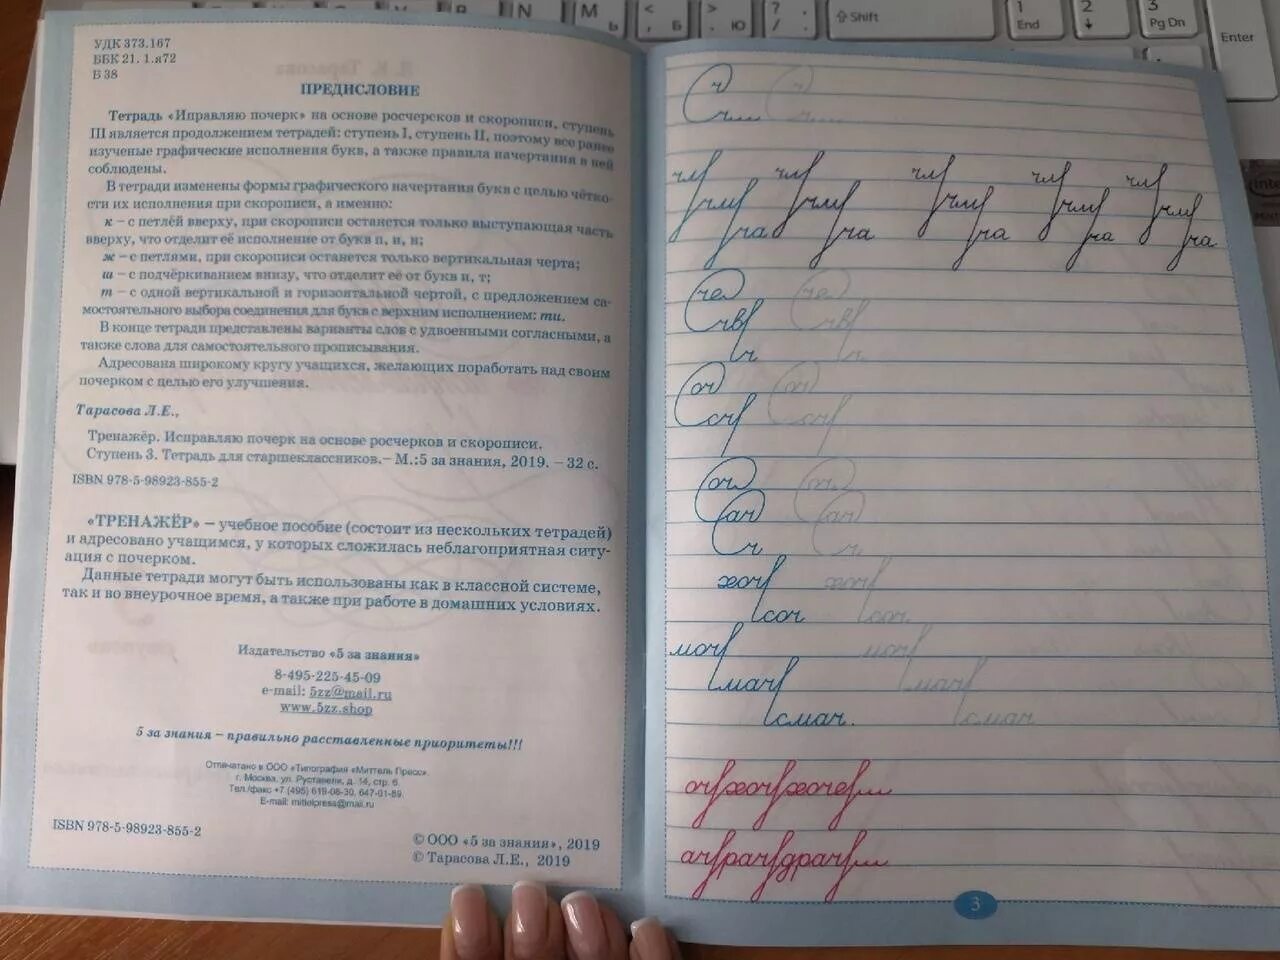 УДК 373.167
ББК 21. 1.я72
Б 38
ПРЕДИСЛОВИЕ
Тетрадь «Иправляю почерк» на основе росчерсков и скорописи, ступень
III является продолжением тетрадей: ступень I, ступень II, поэтому все ранее
изученые графические исполнения букв, а также правила начертания в ней
соблюдены.
В тетради изменены формы графического начертания букв с целью чётко-
сти их исполнения при скорописи, а именно:
к – с петлёй вверху, при скорописи останется только выступающая часть
вверху, что отделит её исполнение от букв п, и, н;
ж – с петлями, при скорописи останется только вертикальная черта;
ш – с подчёркиванием внизу, что отделит её от букв и, т;
т – с одной вертикальной и горизонтальной чертой, с предложением са-
мостоятельного выбора соединения для букв с верхним исполнением: ти.
В конце тетради представлены варианты слов с удвоенными согласными, а
также слова для самостоятельного прописывания.
Адресована широкому кругу учащихся, желающих поработать над своим
почерком с целью его улучшения.
Тарасова Л.Е.,
Тренажёр. Исправляю почерк на основе росчерков и скорописи.
Ступень 3. Тетрадь для старшеклассников.– М.:5 за знания, 2019. – 32 с.
ISBN 978-5-98923-855-2
«ТРЕНАЖЁР» – учебное пособие (состоит из нескольких тетрадей)
и адресовано учащимся, у которых сложилась неблагоприятная ситу-
ация с почерком.
Данные тетради могут быть использованы как в классной системе,
так и во внеурочное время, а также при работе в домашних условиях.
Издательство «5 за знания»
8-495-225-45-09
e-mail: 5zz@mail.ru
www.5zz.shop
5 за знания – правильно расставленные приоритеты!!!
Отпечатано в ООО «Типография «Миттель Пресс».
г. Москва, ул. Руставели, д. 14, стр. 6.
Тел./факс +7 (495) 619-08-30, 647-01-89.
E-mail: mittelpress@mail.ru
ISBN 978-5-98923-855-2
© ООО «5 за знания», 2019
© Тарасова Л.Е., 2019
ч
ч
ча ча ча ча ча
че че
ч ч
оч оч
соч соч
ач ач
ч ч
хоч хоч
соч соч
моч моч
мач мач
смач. смач
3